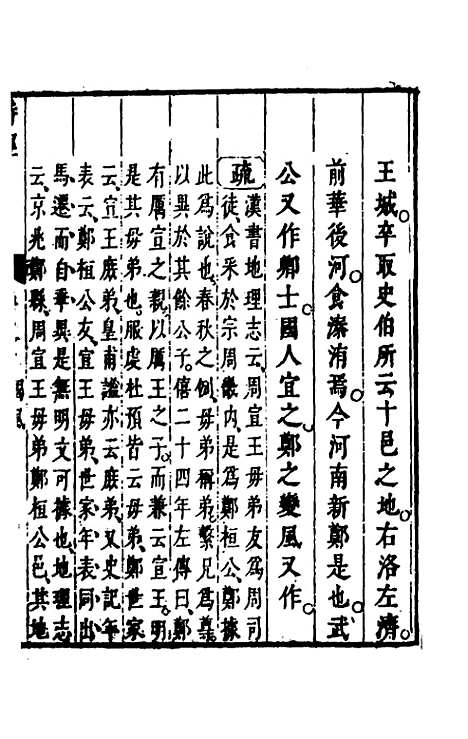 王城卒取史伯所云十邑之地右洛左濟
前華後河食溱洧焉今河南新鄭是也武
公又作卿士國人宜之鄭之變風又作
疏漢書地理志云周宣王毋弟友為周司
徒食采於宗周畿内是為鄭桓公鄭據
此為說也春秋之例毋弟稱弟繫兄為尊
以異於其餘公子僖二十四年左傳曰鄭
有厲宣之親以厲王之子而兼云宣王明
是其毋弟也服虔杜預皆云毋弟鄭世家
云宣王庶弟皇甫謐亦云庶弟又史記年
表云鄭桓公友宣王毋弟世家年表同出
馬遷而自乖異是無明文可據也地理志
云京兆鄭縣周宣王毋弟鄭桓公邑其地
詩經
國風